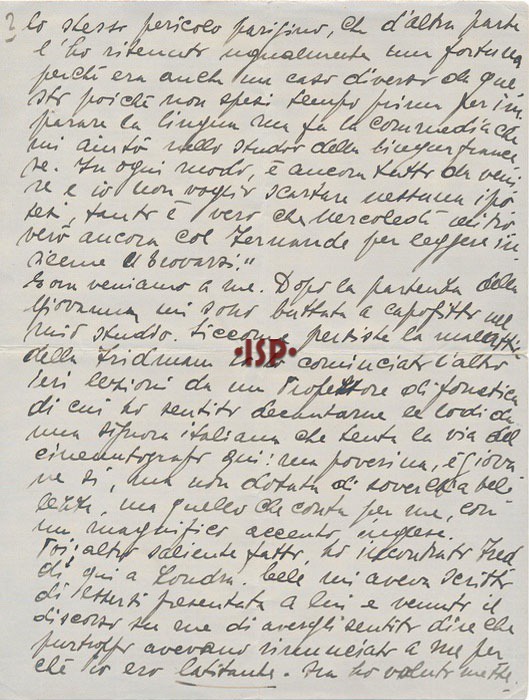 3
lo stesso pericolo parigino, che d'altra parte
l'ho ritenuto ugualmente una fortuna
perchè era anche un caso diverso da que
sto poichè non spesi tempo prima per im
parare la lingua ma fu la commedia che
mi aiutò nello studio della lingua france
se. In ogni modo, è ancora tutto da veni
re e io non voglio scartare nessuna ipo
tesi, tanto è vero che mercoledì mi tro
verò ancora col Fernande per leggere in
sieme
Ora veniamo a me. Dopo la partenza della
Giovanna mi sono buttata a capofitto nel
mio studio. Siccome persiste la malattia
della Fridmann cominciato l'altro
ieri lezioni da un Professore di fonetica
di cui ho sentito decantarne le lodi da
una signora italiana che tenta la via del
cinematografo qui: ma poverina, è giova
ne sì, ma non dotata di soverchia bel
lezza, ma quello che conta per me, con
un magnifico accento inglese.
Poi, altro saliente fatto, ho incontrato Fred
di, qui a Londra. mi aveva scritto
di essersi presentata a lui e venuto il
discorso su me di avergli sentito dire che
purtroppo avevano rinunciato a me per
chè io ero latitante. Ma ho voluto mette
·ISP·